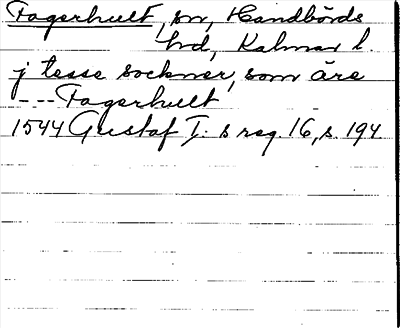 Fagerhult, sn, Handbörds
hd, Kalmar l.
j tesse sockner, som äre
---Fagerhult
1544 Gustaf I:s reg. 16, s. 194